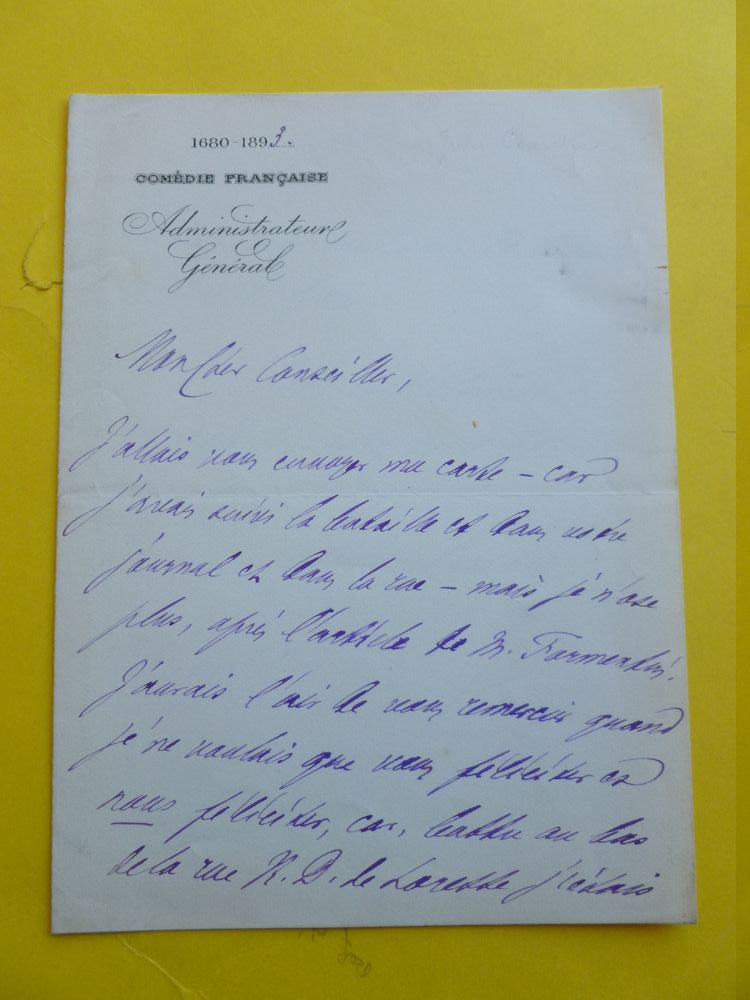 1680-1893.
COMÉDIE FRANÇAISE
Administrateur
Général
Mon cher Conseiller,
J'allais vous envoyer ma carte – car
j'avais suivi la bataille et dans votre
journal et dans la rue – mais je n'ose
plus, après l'article de M. Formentin.
J'aurais l'air de vous remercier quand
je ne voulais que vous féliciter et
nous féliciter, car, battu au bas
de la rue N. D. de Lorette j'étais